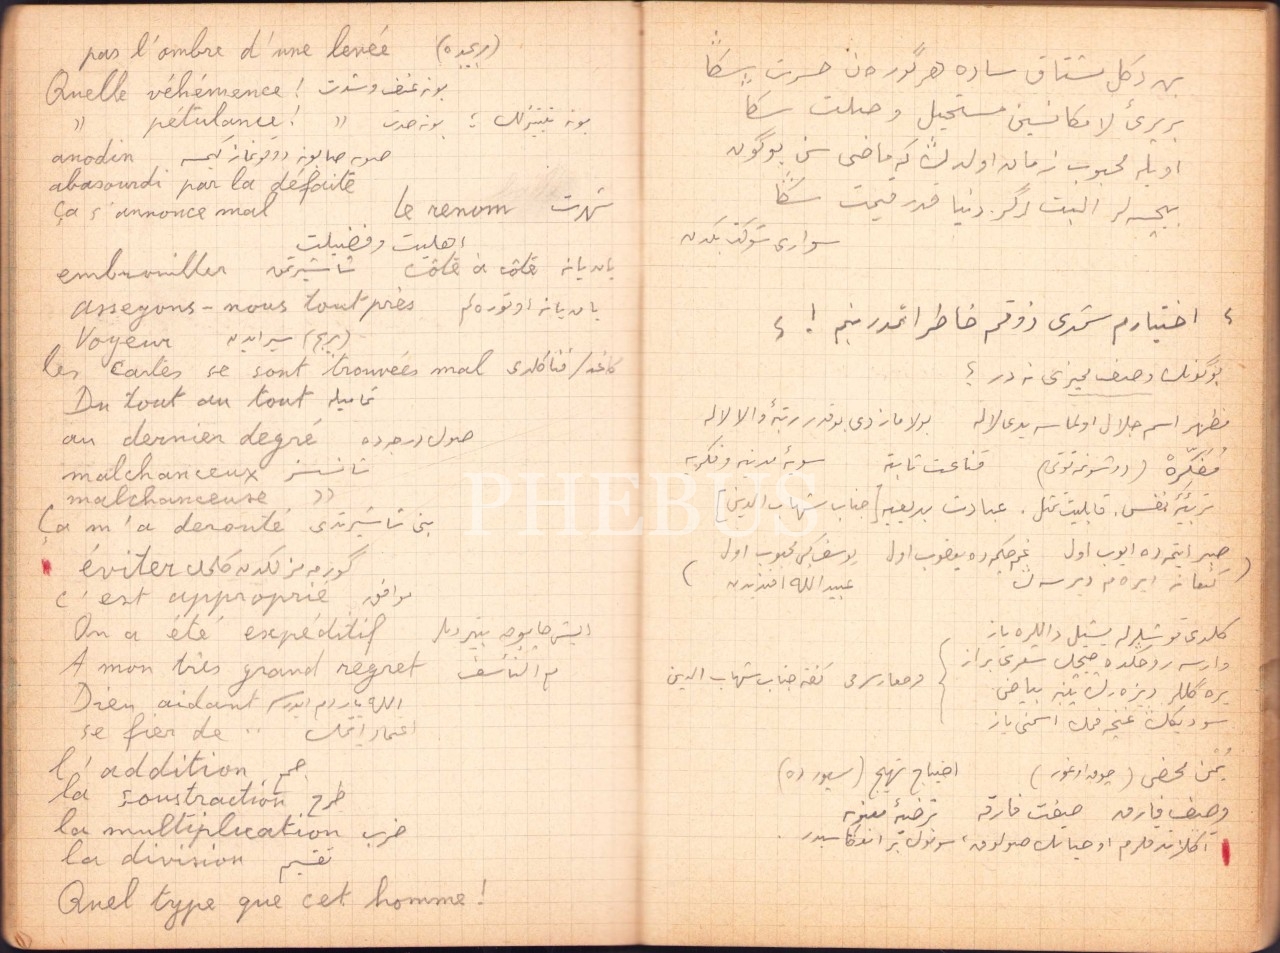 pas l'ombre d'une levée (بریجده)
Quelle véhémence! بونه عنف وشدت
" pétulance! " بونه حدت ؛ بونه تیتیزلك
anodin صویه صابونه دوقونماز كیمسه
abasourdi par la défaite
ça s'annonce mal le renom شهرت
اهلیت و فضیلت
embrouiller شاشیرتمق côte à côte یان یانه
asseyons-nous tout près یان یانه اوتوره لم
Voyeur (بریج) سیر ایدن
les cartes se sont trouvées mal كاغد / فنا كلدی
Du tout au tout تمامیله
au dernier degré صوك درجه ده
malchanceux شانسز
malchanceuse "
ça m'a derouté بنی شاشیرتدی
éviter گورمه مزلكدن كلمك
c'est approprié موافق
On a été expéditif ایشی چابوجه بیتیردیلر
A mon très grand regret مع التأسف
Dieu aidant الله یاردم ایدرسه
se fier de .. اعتماد ایتمك
l'addition جمع
la soustraction طرح
la multiplication ضرب
la division تقسیم
Quel type que cet homme!
بن دكل مشتاق ساده هر گورەن حسرت سكا
بر پری لامكانسین مستحیل وصلت سكا
اویله محبوب زمان اولدك كه ماضی سن بوگون
بیچسه لر البت دگر دنیا قدر قیمت سكا
سواری شوكت بكدن
؟ اختیارم شمدی ذوقم خاطراتمدر بنم ! ؟
بوگونك وصف ممیزی نه در ؟
مظهر اسم جلال اولماسه یدی لاله بولامازدی بو قدر رتبۀ والا لاله
مُفَكِّرَه (دوشونمه قوتی) قناعت ثابته سویۀ مدنیه و فكریه
تربیۀ نفس. قابلیت تمثل. عبادت بدیعیه [جناب شهاب الدین]
صبر ایتمه ده ایوب اول غم چكمه ده یعقوب اول یوسف كبی محبوب اول
(كنعانه ایره م دیرسه ك عبیدالله افندیدن)
كلدی قوشلرله یشیل دالیره یاز
وارسه روحكده چیچك شعری براز
یره گللر دیزه رك پنبه بیاض
سودیكك غنچه فمك اسمنی یاز
و معارسی كفه جناب شهاب الدین
یُمْنِ محضی (چوق اوغور) احتیاج تهیج (سپور ده)
وصف فارق صفت فارقه ترضیۀ معنویه